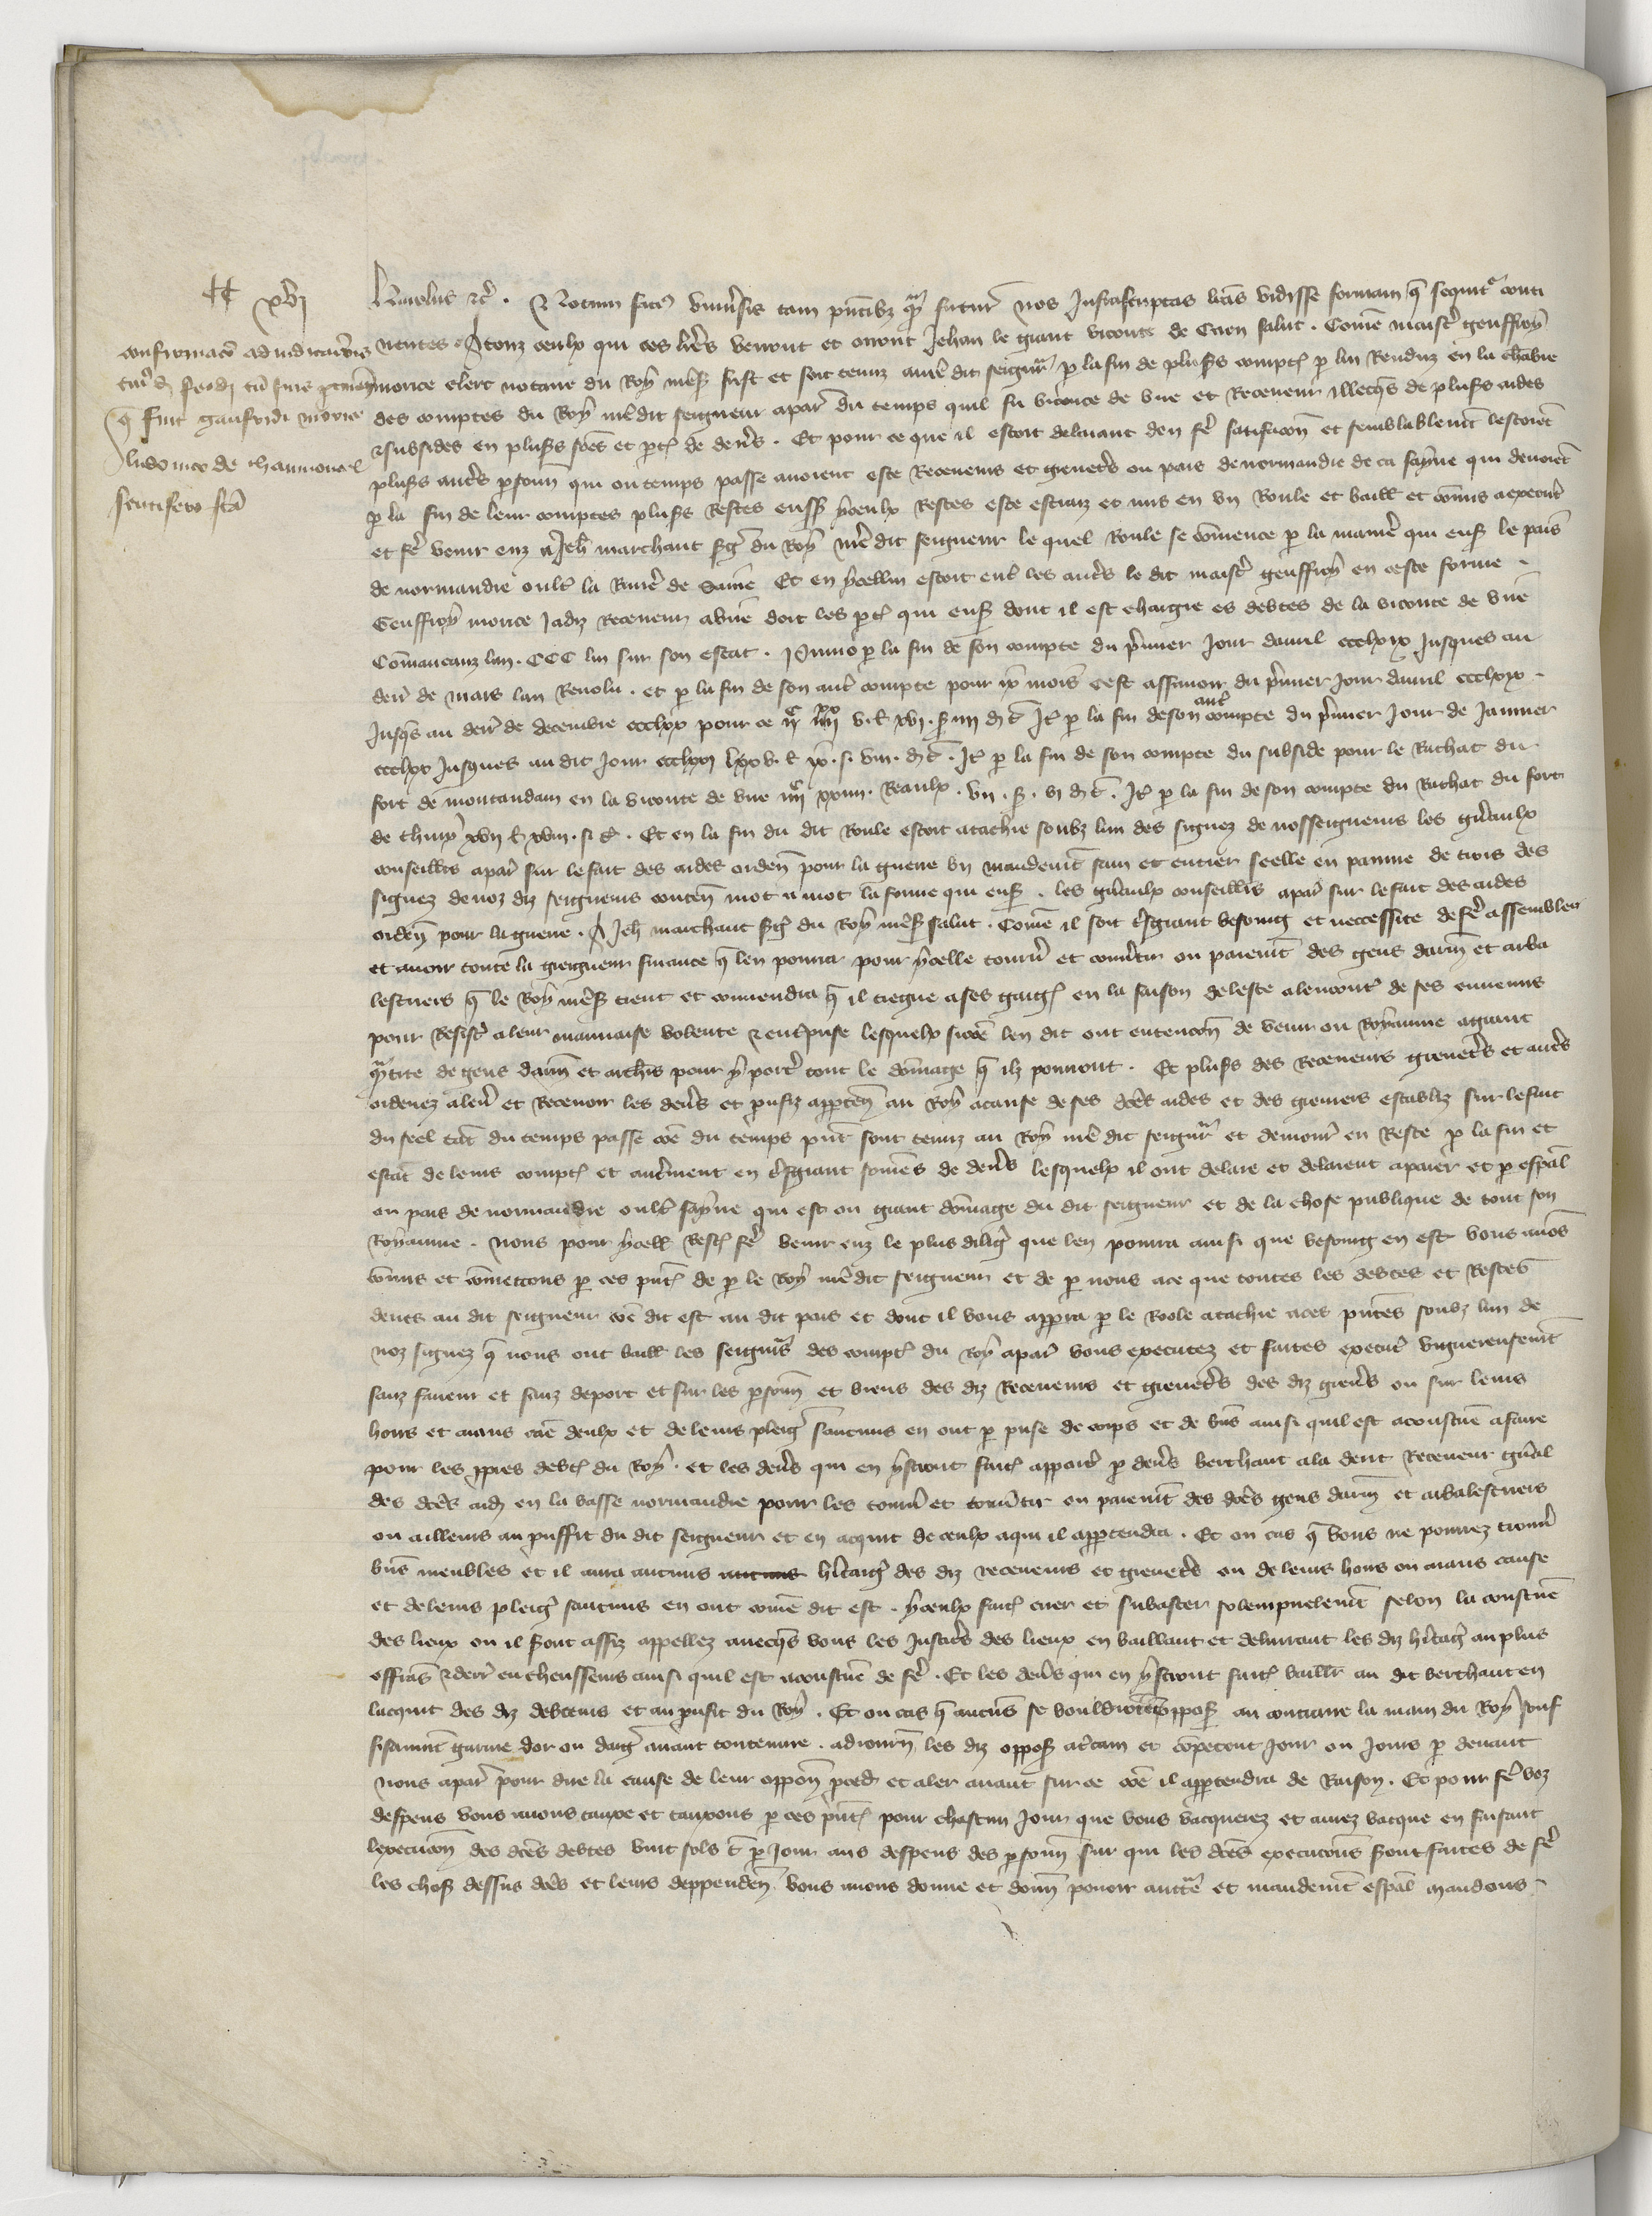 xvj
confirmacio adiudicacionis
Ludovico de
Karolus etc. Notum facimus universis tam presentibus quam futuris nos infrascriptas literas vidisse formam que sequitur conti
nentes. A touz ceulx qui ces lettres verront et orront Jehan le Grant viconte de Caen salut. Comme maistre Geuffroy
Morice clerc notaire du Roy nostre sire fust et soit tenuz au Roy nostre dit seigneur par la fin de plusieurs comptes par lui renduz en la chambre
des comptes du Roy nostre dit seigneur a Paris du temps quil fu viconte de Vire et receveur illecques de plusieurs aides
et subsides en plusieurs sommes et parties de deniers. Et pour ce que il estoit delaiant den faire satisfacion et semblablement lestoient
plusieurs autres personnes qui ou temps passe avoient este receveurs et grenetiers ou pais de Normandie de ca Sayne qui devoient
par la fin de leur comptes plusieurs restes eussent yceulx restes este estraiz et mis en un roule et baillie et commis a executer
et faire venir enz a Jehan Marchant sergent du Roy nostre dit seigneur le quel roule se commence par la maniere qui ensuit le pais
de Normandie oultre la riviere de Saine Et en ycellui estoit entre les autres le dit maistre Geuffroy en ceste forme.
Geuffroy Morice jadiz receveur a Vire doit les parties qui ensuivent dont il est chargie es debtes de la viconte de Vire
commancanz lan CCC sur son estat. Primo par la fin de son compte du premier jour davril ccclxix jusques au
derrenier de mars lan revolu. et par la fin de son autre compte pour ix mois cest assavoir du premier jour davril ccclxx
jusques au derrenier de decembre ccclxx pour ce Item par la fin de son autre compte du premier jour de janvier
ccclxx jusques au dit jour ccclxxj lxxv. l. xv. s. viij. d. t. Item par la fin de son compte du subside pour le rachat du
fort de Montandain en la viconte de Vire Reaulx. vij. s. vj d. t. Item par la fin de son compte du rachat du fort
de xvij l. xviij. s. t. Et en la fin du dit roule estoit atachie soubz lun des signez de nosseigneurs les generaulx
conseilliers a Paris sur le fait des aides ordenez pour la guerre un mandement sain et entier seelle en pannie de trois des
signez de noz diz seigneurs contenant mot a mot la forme qui ensuit. Les generaulx conseilliers a Paris sur le fait des aides
ordenez pour la guerre. A Jehan Marchant sergent du Roy nostre sire salut. Comme il soit tresgrant besoing et neccessite de faire assembler
et avoir toute la greigneur finance que len pourra pour ycelle tourner et convertir ou paiement des gens darmes et arba
lestriers que le Roy nostre sire tient et convendra que il tiegne a ses gaiges en la saison de leste a lencontre de ses ennemis
pour resister a leur mauvaise volente et entreprise lesquelx sicomme len dit ont entencion de venir ou royaume a grant
quantite de gens darmes et archiers pour y porter tout le dommage que ilz pourront. Et plusieurs des receveurs grenetiers et autres
ordenez a lever et recevoir les deniers et proufiz appartenans au Roy a cause de ses dictes aides et des greniers establiz sur le fait
du seel tant du temps passe comme du temps present sont tenuz au Roy nostre dit seigneur et demourez en reste par la fin et
estat de leurs comptes et autrement en tresgrant sommes de deniers lesquelx il ont delaie et delaient a paier et par especial
ou pais de Normandie oultre Sayne qui est ou grant dommage du dit seigneur et de la chose publique de tout son
royaume. Nous pour yceulx restes faire venir enz le plus diligemment que len pourra ainsi que besoing en est vous avons
commis et commettons par ces presentes de par le Roy nostre dit seigneur et de par nous a ce que toutes les debtes et restes
deues au dit seigneur comme dit est au dit pais et dont il vous apperra par le roole atachie a ces presentes soubz lun de
noz signez que nous ont baillie les seigneurs des comptes du Roy a Paris vous executez et faites executer vigueureusement
sanz faveur et sanz deport et sur les personnes et biens des diz receveurs et grenetiers des diz greniers ou sur leurs
hoirs et aians cause deulx et de leurs pleiges saucuns en ont par prise de corps et de biens ainsi quil est acoustume a faire
pour les propres debtes du Roy. et les deniers qui en ystront faites apporter par devers Berthaut a la Dent receveur general
des dictes aides en la basse Normandie pour les tourner et convertir ou paiement des dictes gens darmes et arbalestriers
ou ailleurs au prouffit du dit seigneur et en acquit de ceulx a qui il appartendra. Et ou cas que vous ne pourrez trouver
biens meubles et il aura aucuns heritaiges des diz receveurs et grenetiers ou de leurs hoirs ou aians cause
et de leurs pleiges saucuns en ont comme dit est. yceulx faites crier et subaster solempnelement selon la coustume
des lieux ou il sont assiz appellez avecques vous les justiciers des lieux en baillant et delivrant les diz heritages au plus
offrans et derrenier encherisseurs ainsi quil est acoustume de faire. Et les deniers qui en ystront faites baillier au dit Berthaut en
lacquit des diz debteurs et au proufit du Roy. Et ou cas que aucuns se vouldroient opposer au contraire la main du Roy souf
fisamment garnie dor ou dargent avant toute euvre. adjournez les diz opposans a certain et competent jour ou jours par devant
nous a Paris pour dire la cause de leur opposicion proceder et aler avant sur ce comme il appartendra de raison. Et pour faire voz
despens vous avons tauxe et tauxons par ces presentes pour chascun jour que vous vacquerez et aurez vacque en faisant
lexecucion des dictes debtes vint sols t. par jour aus despens des personnes sur qui les dictes execucions seront faites de faire
les choses dessus dictes et leurs deppendences vous avons donne et donnons povoir auctorite et mandement especial mandons